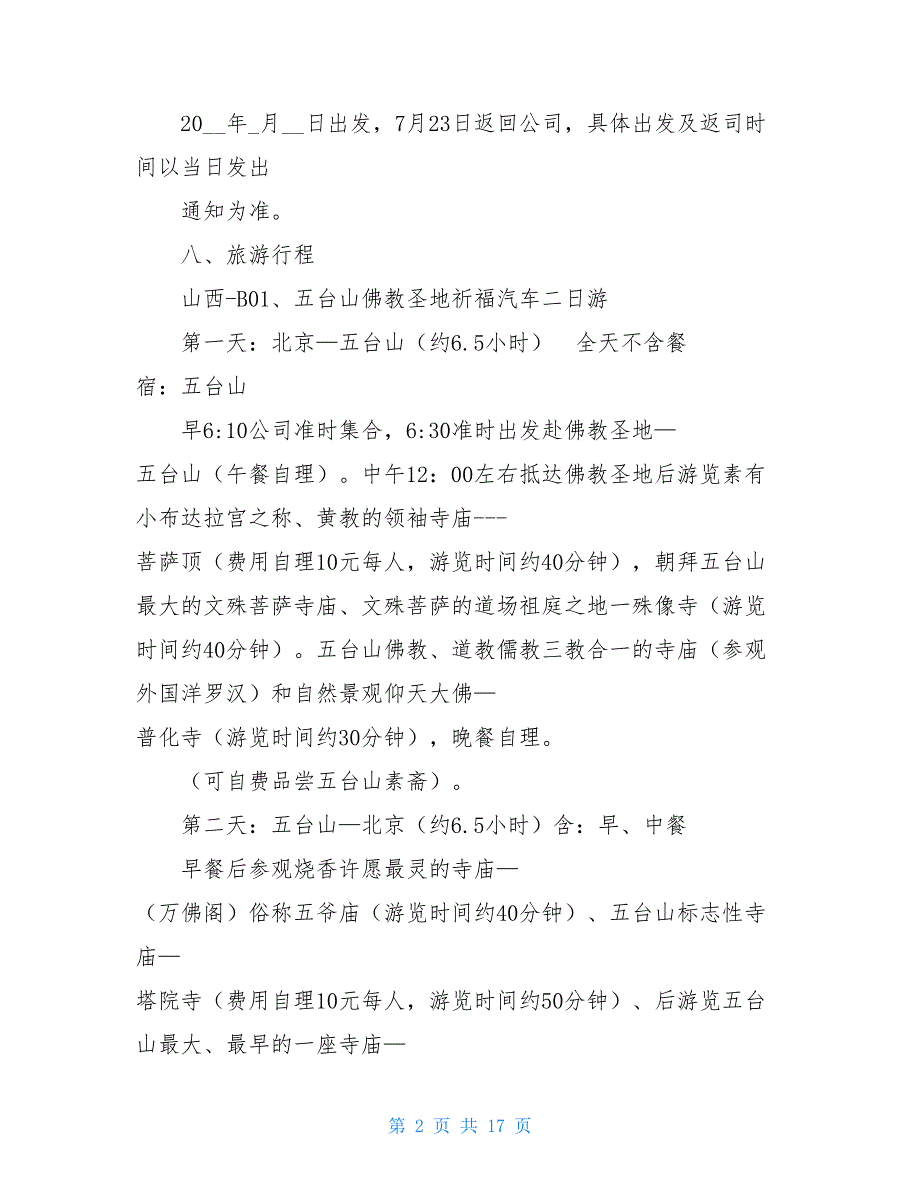 20__年_月__日出发，7月23日返回公司，具体出发及返司时
间以当日发出
通知为准。
八、旅游行程
山西-B01、五台山佛教圣地祈福汽车二日游
第一天：北京—五台山（约6.5小时）　全天不含餐
宿：五台山
早6:10公司准时集合，6:30准时出发赴佛教圣地—
五台山（午餐自理）。中午12：00左右抵达佛教圣地后游览素有
小布达拉宫之称、黄教的领袖寺庙---
菩萨顶（费用自理10元每人，游览时间约40分钟），朝拜五台山
最大的文殊菩萨寺庙、文殊菩萨的道场祖庭之地一殊像寺（游览
时间约40分钟）。五台山佛教、道教儒教三教合一的寺庙（参观
外国洋罗汉）和自然景观仰天大佛—
普化寺（游览时间约30分钟），晚餐自理。
（可自费品尝五台山素斋）。
第二天：五台山—北京（约6.5小时）含：早、中餐
早餐后参观烧香许愿最灵的寺庙—
（万佛阁）俗称五爷庙（游览时间约40分钟）、五台山标志性寺
庙—
塔院寺（费用自理10元每人，游览时间约50分钟）、后游览五台
山最大、最早的一座寺庙—
第 2 页 共 17 页